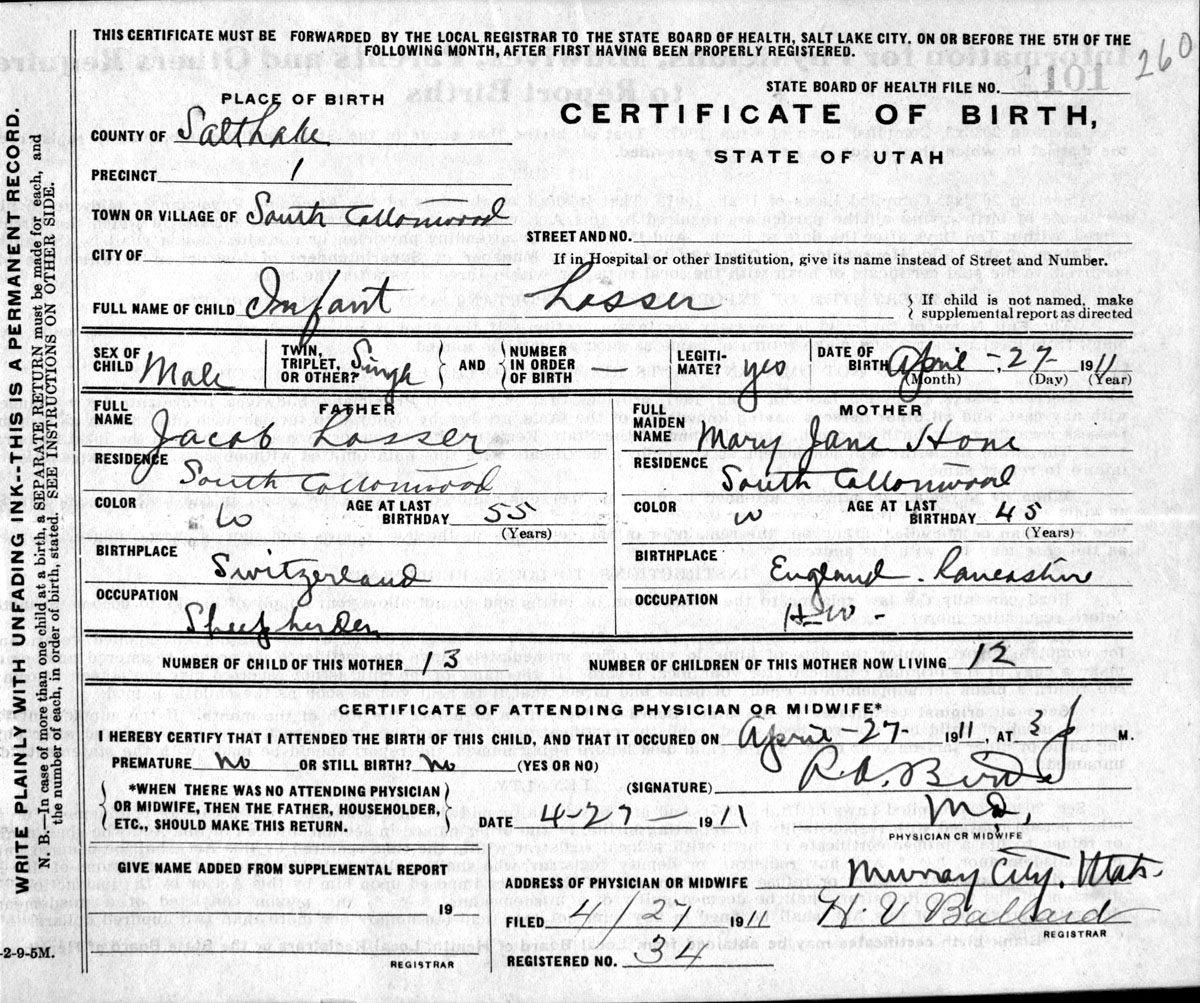 THIS CERTIFICATE MUST BE FORWARDED BY THE LOCAL REGISTRAR TO THE STATE BOARD OF HEALTH, SALT LAKE CITY, ON OR BEFORE THE 5TH OF THE
FOLLOWING MONTH, AFTER FIRST HAVING BEEN PROPERLY REGISTERED.
260
101
STATE BOARD OF HEALTH FILE NO.
PLACE OF BIRTH
CERTIFICATE OF BIRTH,
STATE OF UTAH
COUNTY OF Salt Lake
PRECINCT 1
TOWN OR VILLAGE OF South Cottonwood
STREET AND NO.
CITY OF
If in Hospital or other Institution, give its name instead of Street and Number.
FULL NAME OF CHILD Infant Losser
{ If child is not named, make
supplemental report as directed
SEX OF CHILD Male
TWIN, TRIPLET, OR OTHER? Singl
AND
NUMBER IN ORDER OF BIRTH
LEGITIMATE? yes
DATE OF BIRTH April - 27 - 1911
(Month) (Day) (Year)
FATHER
FULL NAME Jacob Losser
RESIDENCE South Cottonwood
COLOR W AGE AT LAST BIRTHDAY 55
(Years)
BIRTHPLACE Switzerland
OCCUPATION Sheepherder
MOTHER
FULL MAIDEN NAME Mary Jane Hone
RESIDENCE South Cottonwood
COLOR W AGE AT LAST BIRTHDAY 45
(Years)
BIRTHPLACE England. Lancashire
OCCUPATION H W -
NUMBER OF CHILD OF THIS MOTHER 13 NUMBER OF CHILDREN OF THIS MOTHER NOW LIVING 12
CERTIFICATE OF ATTENDING PHYSICIAN OR MIDWIFE*
I HEREBY CERTIFY THAT I ATTENDED THE BIRTH OF THIS CHILD, AND THAT IT OCCURRED ON April - 27 - 1911 AT 3 M.
PREMATURE no OR STILL BIRTH? no (YES OR NO)
(SIGNATURE)
*WHEN THERE WAS NO ATTENDING PHYSICIAN
OR MIDWIFE, THEN THE FATHER, HOUSEHOLDER,
ETC., SHOULD MAKE THIS RETURN.
DATE 4-27-1911
M.D.
PHYSICIAN OR MIDWIFE
GIVE NAME ADDED FROM SUPPLEMENTAL REPORT
ADDRESS OF PHYSICIAN OR MIDWIFE Murray City. Utah.
19
FILED 1911 Ballard
REGISTRAR
REGISTRAR
REGISTERED NO. 34
WRITE PLAINLY WITH UNFADING INK--THIS IS A PERMANENT RECORD.
N. B.—In case of more than one child at a birth, a SEPARATE RETURN must be made for each, and
the number of each, in order of birth, stated. SEE INSTRUCTIONS ON OTHER SIDE.
-2-9-5M.